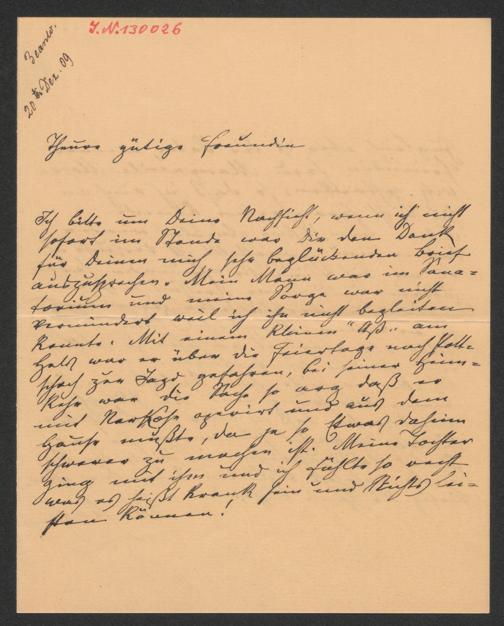 J.N. 130026
Beantw.
20ten Dez. 09
Theure gütige Freundin
Ich bitte um Deine Nachsicht, wenn ich nicht
sofort im Stande war Dir den Dank
für Deinen mich sehr beglückenden Brief
auszusprechen. Mein Mann war im Sana-
torium und meine Sorge war nicht
vermindert weil ich ihn nicht begleiten
konnte. Mit einem kleinen "Aß" am
Hals war er über die Feiertage nach Kott-
schach zur Jagd gefahren, bei seiner Heim-
kehr war die Sache so arg daß er
mit Narkose operirt und aus dem
Hause mußte, da ja so Etwas daheim
schwerer zu machen ist. Meine Tochter
ging mit ihm und ich fühlte so recht
was es heißt krank sein und Nichts lei-
sten können!